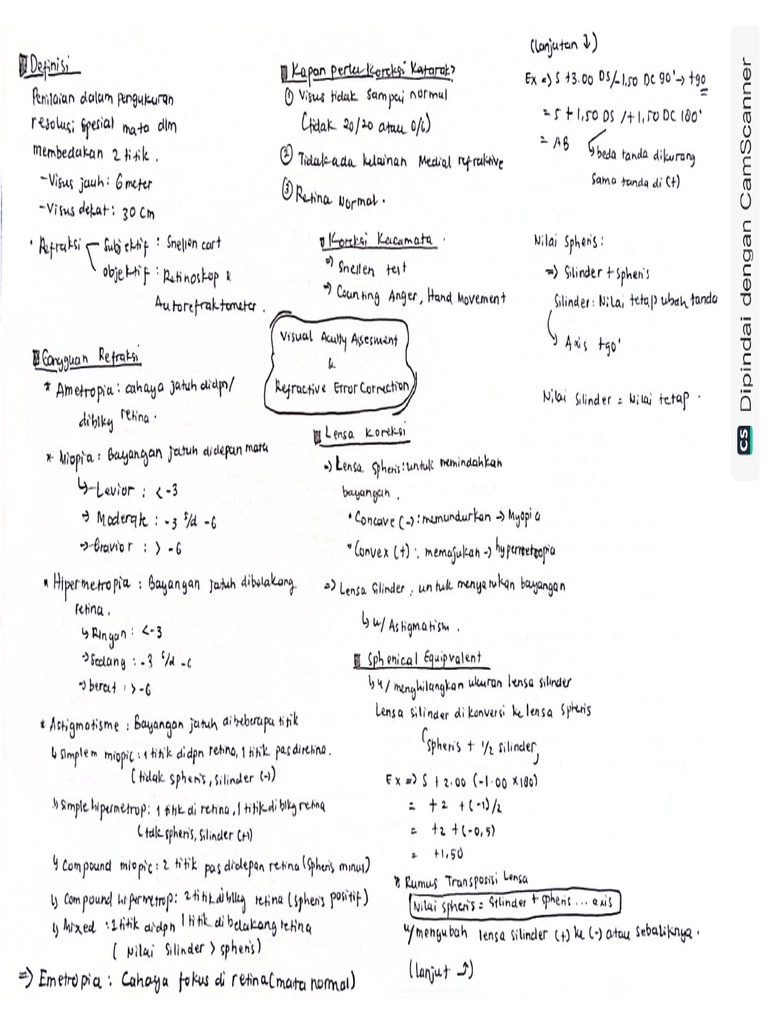 Definisi
Penilaian dalam pengukuran
resolusi spesial mata dlm
membedakan 2 titik.
-Visus jauh: 6 meter
-Visus dekat: 30 cm
• Refraksi
Subjektif : Snellen cart
objektif : Retinoskop &
Autorefraktometer.
Gangguan Refraksi
* Ametropia : cahaya jatuh didpn/
diblkg retina.
* Miopia : Bayangan jatuh didepan mata
↳ Levior : < -3
→ Moderat : -3 s/d -6
→ Gravior : > -6
* Hipermetropia : Bayangan jatuh dibelakang
retina.
↳ Ringan : < -3
→ Sedang : -3 s/d -6
→ berat : > -6
* Astigmatisme : Bayangan jatuh dibeberapa titik
↳ simplem miopic : 1 titik didpn retina, 1 titik pas diretina.
(tidak spheris, silinder (-))
↳ simple hipermetrop : 1 titik di retina, 1 titik di blkg retina
(tdk spheris, silinder (+))
↳ Compound miopic : 2 titik pas didepan retina (spheris minus)
↳ Compound hipermetrop : 2 titik diblkg retina (spheris positif)
↳ Mixed : 1 titik didpn 1 titik di belakang retina
( Nilai Silinder > spheris)
=> Emetropia : Cahaya fokus di retina (mata normal)
Kapan Perlu Koreksi Katarak?
① Visus tidak sampai normal
(tidak 20/20 atau 6/6)
② Tidak ada kelainan Medial refraktive
③ Retina Normal.
Koreksi Kacamata.
→ Snellen test
→ Counting Anger, Hand Movement
Visual Acuity Assesment
&
Refractive Error Correction
Lensa Koreksi
=> Lensa spheris : untuk memindahkan
bayangan.
• Concave (-) : memundurkan → Myopia
• Convex (+) : memajukan → hypermetropia
=> Lensa Silinder : untuk menyatukan bayangan
↳ u/ Astigmatism.
Spherical Equipvalent
↳ u/ menghilangkan ukuran lensa silinder
Lensa silinder di konversi ke lensa spheris
(spheris + 1/2 silinder)
Ex => S +2.00 (-1.00 x 180)
= +2 +(-1)/2
= +2 +(-0,5)
= +1,50
Rumus Transposisi Lensa
Nilai spheris = Silinder + spheris ... axis
u/ mengubah lensa silinder (+) ke (-) atau sebaliknya.
(lanjut ↗)
(lanjutan ↓)
Ex => S +3.00 DS/-1,50 DC 90° → +90
= S +1,50 DS /+1,50 DC 180°
= AB
↳ beda tanda dikurang
sama tanda di (+)
Nilai spheris :
=> Silinder + spheris
Silinder : Nilai tetap ubah tanda
↳ Axis +90°
Nilai silinder = Nilai tetap.
CS Dipindai dengan CamScanner